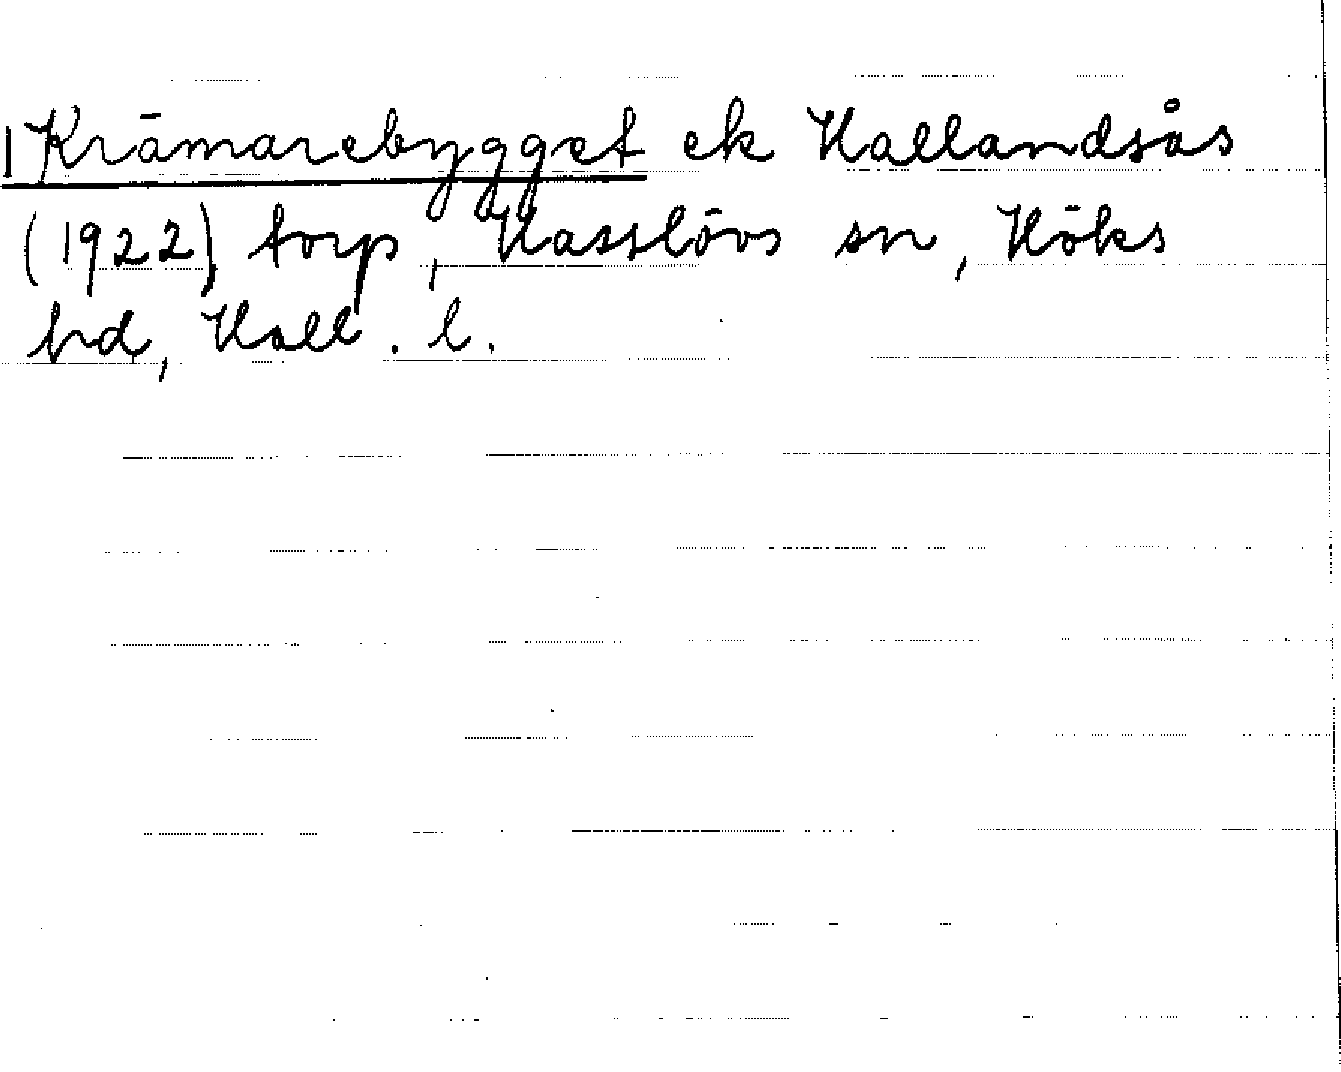 1 Krämarebygget ek Hallandsås
(1922), torp, Hasslövs sn, Höks
hd, Hall. l.